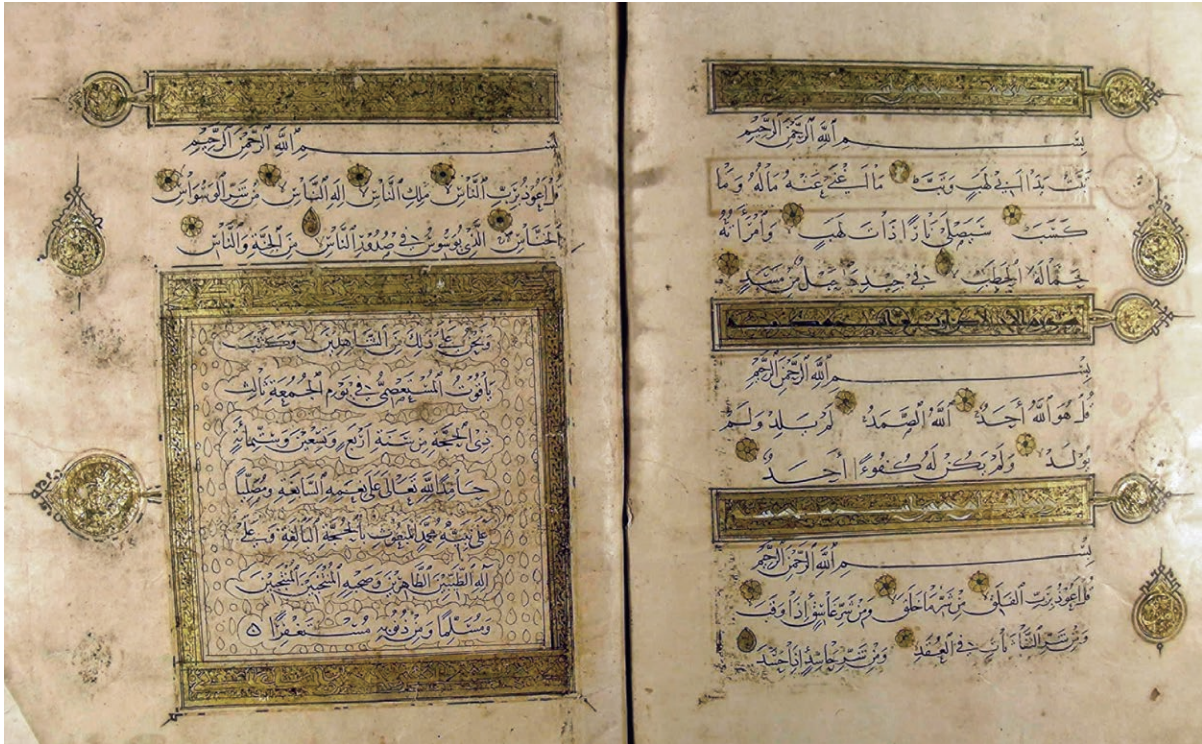 بسم الله الرحمن الرحيم
تبت يدا ابي لهب وتب ما اغنى عنه ماله وما
كسب سيصلى نارا ذات لهب وامراته
حمالة الحطب في جيدها حبل من مسد
بسم الله الرحمن الرحيم
قل هو الله أحد الله الصمد لم يلد ولم
يولد ولم يكن له كفوءا أحد
بسم الله الرحمن الرحيم
قل أعوذ برب الفلق من شر ما خلق ومن شر غاسق إذا وقب
ومن شر النفاثات في العقد ومن شر حاسد إذا حسد
بسم الله الرحمن الرحيم
قل أعوذ برب الناس ملك الناس اله الناس من شر الوسواس
الخناس الذي يوسوس في صدور الناس من الجنة والناس
ونحن على ذلك من الشاهدين وكتب
ياقوت المستعصمي في يوم الجمعة ثالث
ذي الحجة من سنة أربع وتسعين وستمائة
حامدا لله تعالى على نعمه السابغة ومصليا
على نبيه محمد المبعوث بالحجة البالغة وعلى
آله الطيبين الطاهرين وصحبه المنتخبين المنتجبين
ومسلما ومن ذنوبه مستغفرا